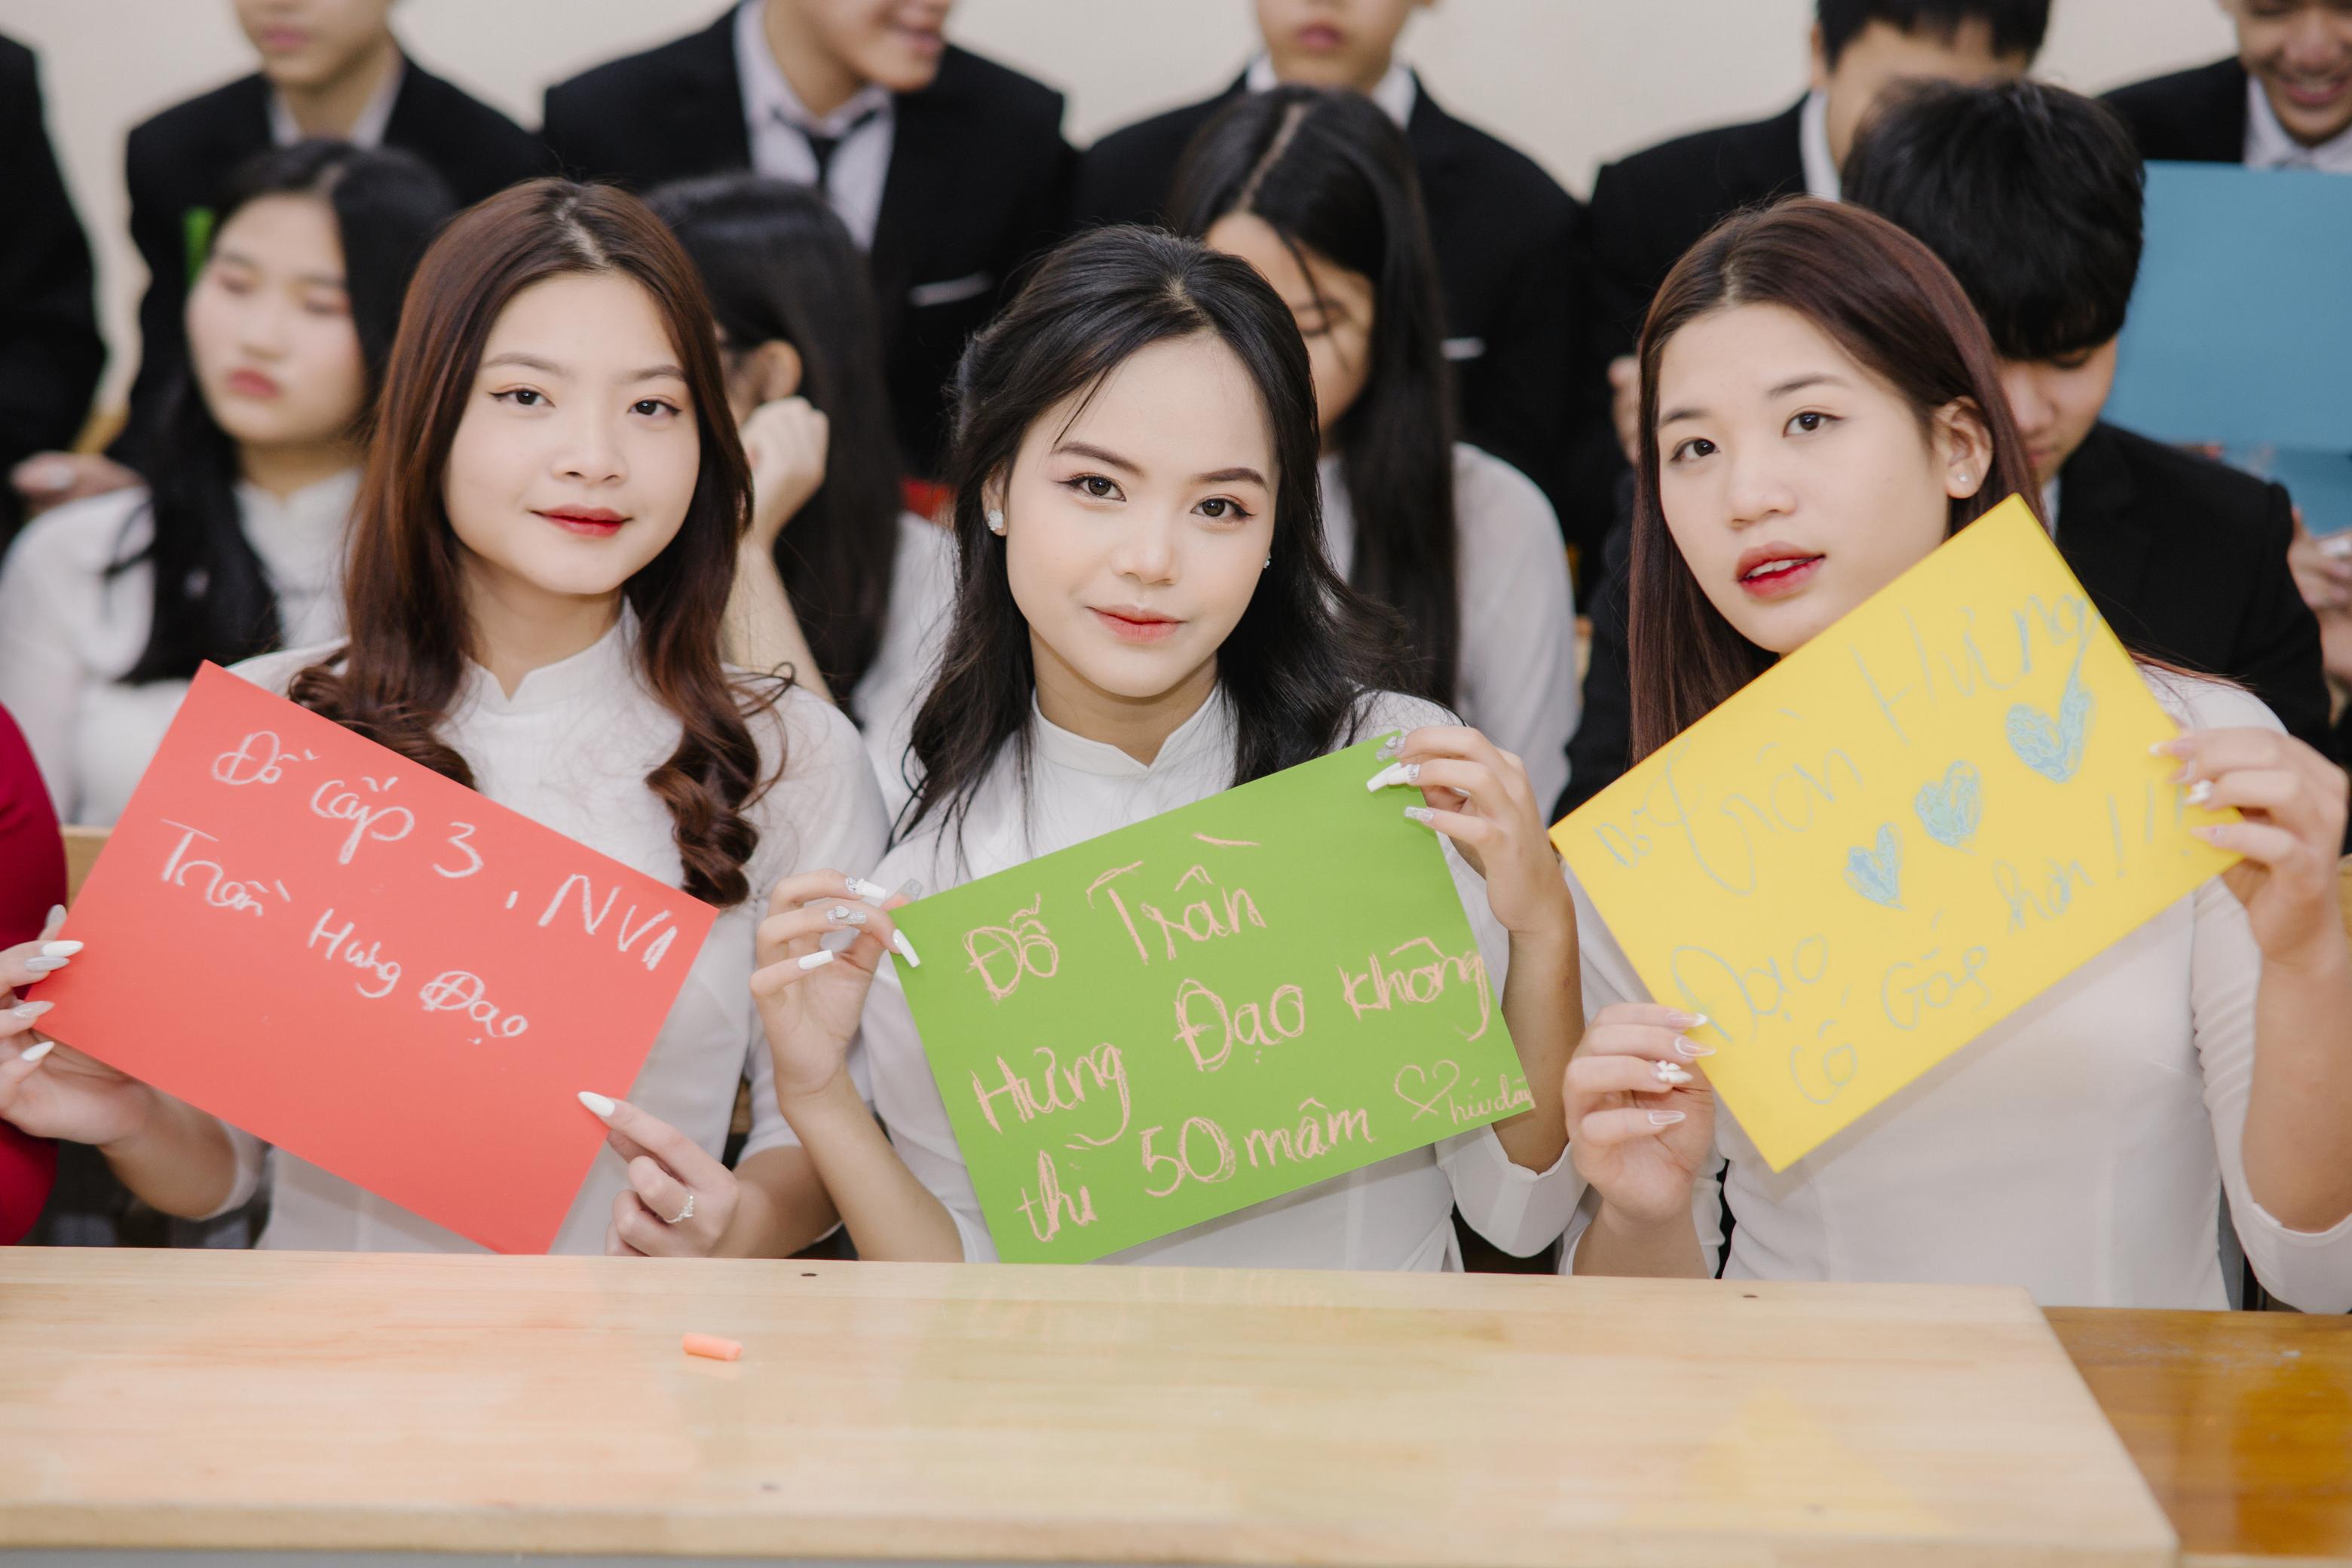 Đỗ cấp 3, NVA
Trần Hưng Đạo
Đỗ Trần
Hưng Đạo không
thì 50 mâm
Trần Hưng
Đạo
Cố Gắng hơn!!!